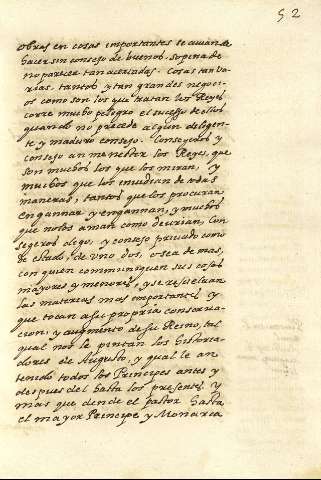 52
obras en cosas importantes se auian de
hacer sin consejo de buenos. so pena de
no parecer tan acertadas. Cosas tan va
rias tantos y tan grandes negoci
os como son los que tratan los Reyes
corre mucho peligro el suceso de ellos
quando no precede algun deligen
te y maduro consejo. Consejeros y
consejo an menester los Reyes, que
son muchos los que los miran, y
muchos que los inuidian de todas
maneras, tantos que los procuran
engannar y engannan, y muchos
que no los aman como deurian, Con
segeros digo, y consejo priuado como
de estado, de uno dos, o sea de mas,
con quien communiquen sus cosas
mayores y menores, y se resueluan
las materias mas importantes y
que tocan a su propria conserua
cion, y augmento de su Reino, tal
qual nos le pintan los historia
dores de Augusto, y qual le an
tenido todos los Principes antes y
despues del hasta los presentes, y
mas que dende el pastor hasta
el mayor Principe y Monarca